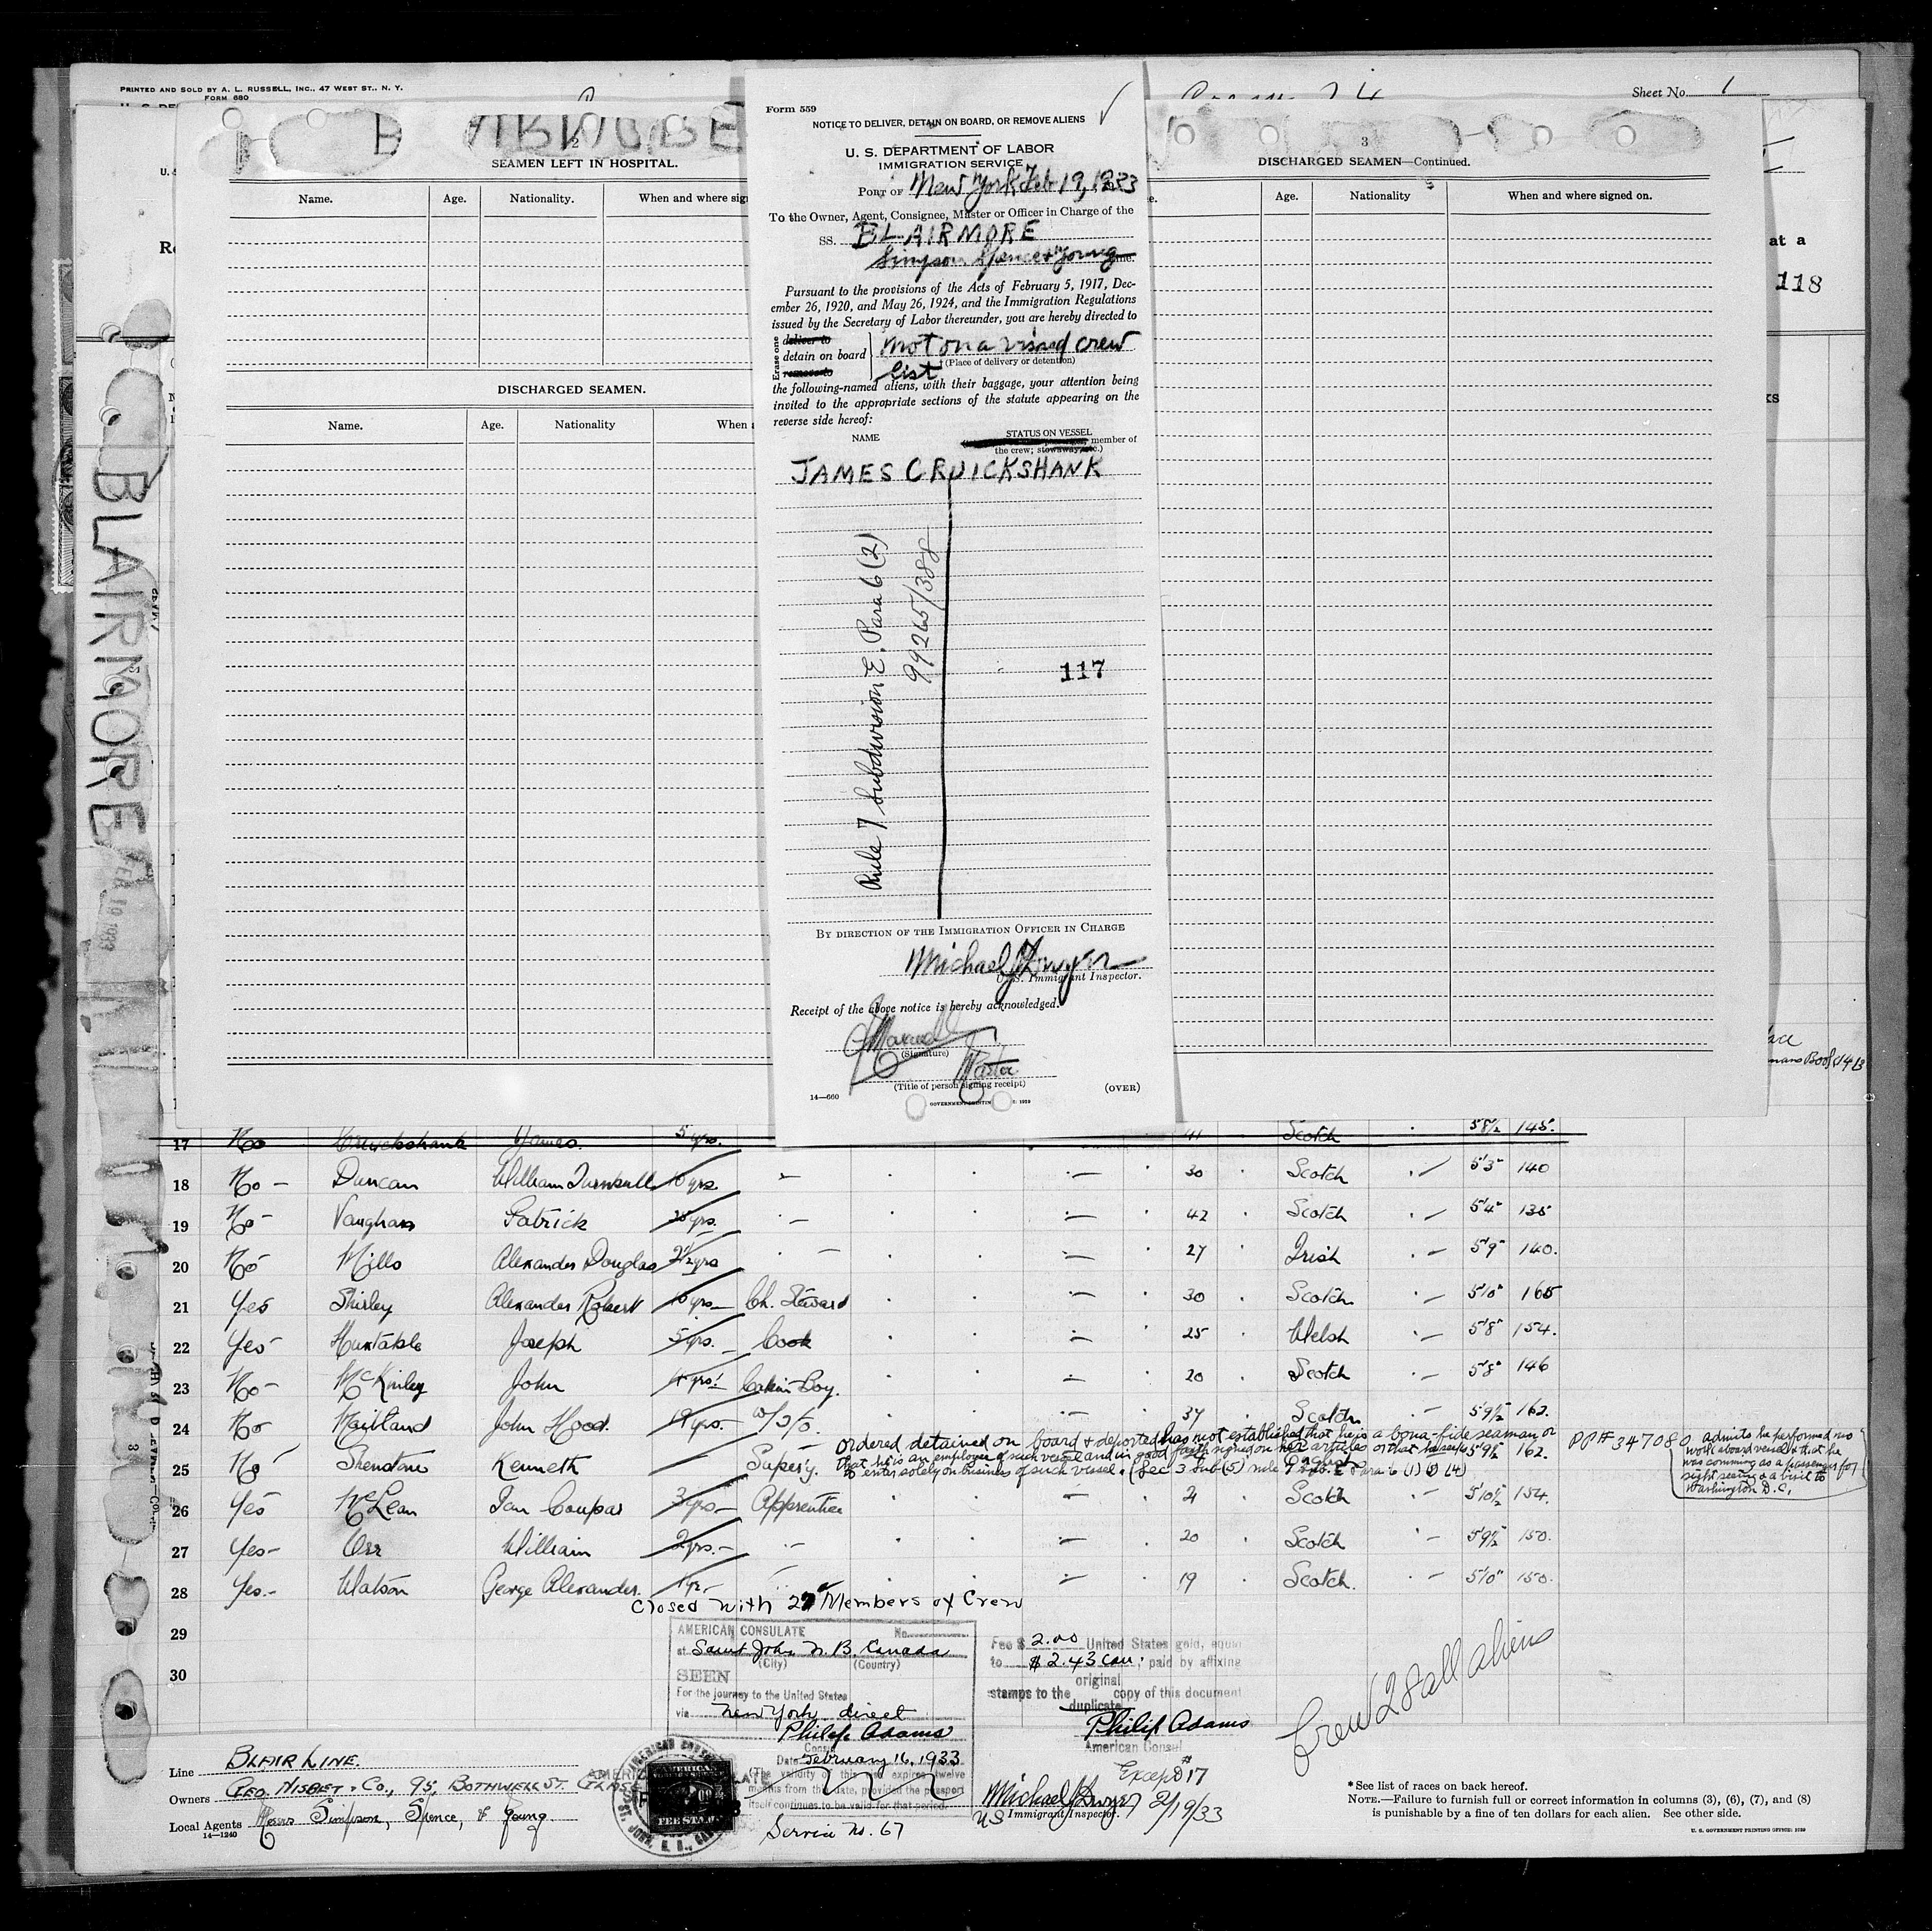 PRINTED AND SOLD BY A. L. RUSSELL, INC., 47 WEST ST., N. Y.
FORM 680
Sheet No. 1
2
SEAMEN LEFT IN HOSPITAL.
Name. Age. Nationality. When and where sig
DISCHARGED SEAMEN.
Name. Age. Nationality When
3
DISCHARGED SEAMEN—Continued.
e. Age. Nationality When and where signed on.
at a
118
BLAIRMORE
FEB 19 1933
Form 559
NOTICE TO DELIVER, DETAIN ON BOARD, OR REMOVE ALIENS
U. S. DEPARTMENT OF LABOR
IMMIGRATION SERVICE
PORT OF New York Feb 19, 1933
To the Owner, Agent, Consignee, Master or Officer in Charge of the
SS. BLAIRMORE
Simpson Spence & Young Line.
Pursuant to the provisions of the Acts of February 5, 1917, Dec-
ember 26, 1920, and May 26, 1924, and the Immigration Regulations
issued by the Secretary of Labor thereunder, you are hereby directed to
Erase one
deliver to
detain on board
remove to
not on a visaed crew
list
(Place of delivery or detention)
the following-named aliens, with their baggage, your attention being
invited to the appropriate sections of the statute appearing on the
reverse side hereof:
NAME STATUS ON VESSEL
member of
the crew; stowaway, etc.)
JAMES CRUICKSHANK
Rule 7 Subdivision E. Para 6 (2)
99265/388
117
BY DIRECTION OF THE IMMIGRATION OFFICER IN CHARGE
Michael J Dwyer
U. S. Immigrant Inspector.
Receipt of the above notice is hereby acknowledged.
(Signature)
Master
(Title of person signing receipt)
14—660
(OVER)
17 No Cruickshank James. 5 yrs. 41 Scotch 5'8½ 145.
18 No - Duncan William Turnbull 10 yrs. 30 Scotch 5'3" 140
19 No - Vaughan Patrick 42 Scotch 5'4" 135
20 No Mills Alexander Douglas 2½ yrs 27 Irish 5'9" 140.
21 Yes Shirley Alexander Robert 10 yrs Ch. Steward 30 Scotch. 5'10" 165
22 Yes Huxtable Joseph 5 yrs. Cook 25 Welsh 5'8" 154.
23 No - McKinley John 4 yrs. Cabin Boy. 20 Scotch 5'8" 146
24 No Maitland John Hood. 19 yrs. W/O/O. 37 Scotch 5'9½ 162.
ordered detained on board & deported has not established that he is a bona-fide seaman or
25 No Shenstone Kenneth Super'y. that he is an employee of such vessel and in good faith signed on her articles or that he seeks 5'9½ 162.
to enter solely on business of such vessel. (Sec 3 Sub (5) rule 7 Sub. E Para 6 (1) & (4)
PP# 347080
admits he performed no
work aboard vessel & that he
was comming as a passenger for
sight seeing & a visit to
Washington D.C.,
26 Yes McLean Ian Coupar 3 yrs Apprentice 21 Scotch 5'10½ 154.
27 Yes - Orr William 2 yrs. 20 Scotch 5'9½ 150.
28 Yes. - Watson George Alexander. 1 yr. 19 Scotch. 5'10" 150.
Closed with 27 Members of Crew
29
30
AMERICAN CONSULATE No.
at Saint John N. B. Canada
(City) (Country)
SEEN
For the journey to the United States
via New York direct
Philip Adams
Consul
Date February 16, 1933
(The validity of this visa expires twelve
months from this date, provided the passport
itself continues to be valid for that period.
Service No. 67
Fee $ 2.00 United States gold, equiv
to $ 2.43 can; paid by affixing
original
stamps to the copy of this document
duplicate
Philip Adams
American Consul
Except #17
Michael J Dwyer 2/19/33
US Immigrant Inspector.
Crew 28 all aliens
Line BLAIR LINE.
Owners GEO. NISBET & Co., 95, BOTHWELL ST.
Local Agents Messrs Simpson, Spence, & Young.
14—1240
* See list of races on back hereof.
NOTE.—Failure to furnish full or correct information in columns (3), (6), (7), and (8)
is punishable by a fine of ten dollars for each alien. See other side.
U. S. GOVERNMENT PRINTING OFFICE: 1929